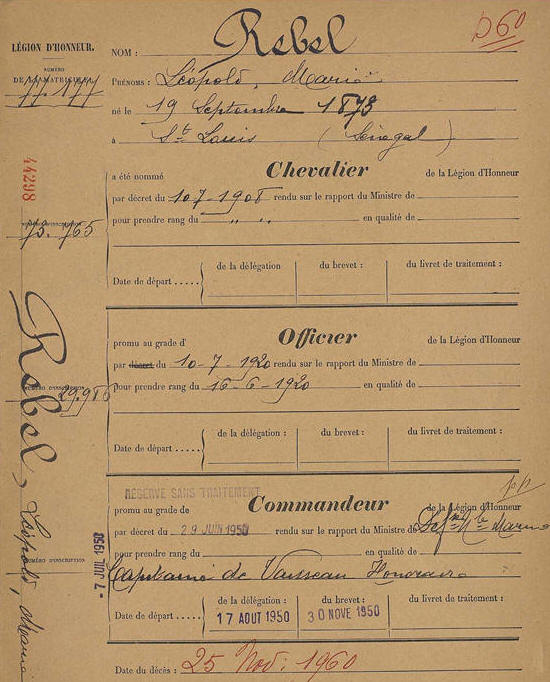 D60
LÉGION D'HONNEUR.
NUMÉRO
DE LA MATRICULE
77.177
44298
73.765
NUMÉRO D'INSCRIPTION
29.986
NUMÉRO D'INSCRIPTION
-7 JUIL 1950
Rebel, Léopold, Marie
NOM : Rebel
PRÉNOMS : Léopold, Marie
né le 19 Septembre 1873
à St Louis (Sénégal)
a été nommé Chevalier de la Légion d'Honneur
par décret du 10-7-1908 rendu sur le rapport du Ministre de
pour prendre rang du " " en qualité de
de la délégation du brevet : du livret de traitement :
Date de départ .....
promu au grade d' Officier de la Légion d'Honneur
par décret du 10-7-1920 rendu sur le rapport du Ministre de
pour prendre rang du 16-6-1920 en qualité de
de la délégation : du brevet : du livret de traitement :
Date de départ .....
RÉSERVE SANS TRAITEMENT
promu au grade de Commandeur de la Légion d'Honneur
par décret du 29 JUIN 1950 rendu sur le rapport du Ministre de Marine
pour prendre rang du en qualité de
Capitaine de Vaisseau Honoraire
de la délégation : du brevet : du livret de traitement :
Date de départ ..... 17 AOUT 1950 30 NOVE 1950
Date du décès : 25 Nov: 1960